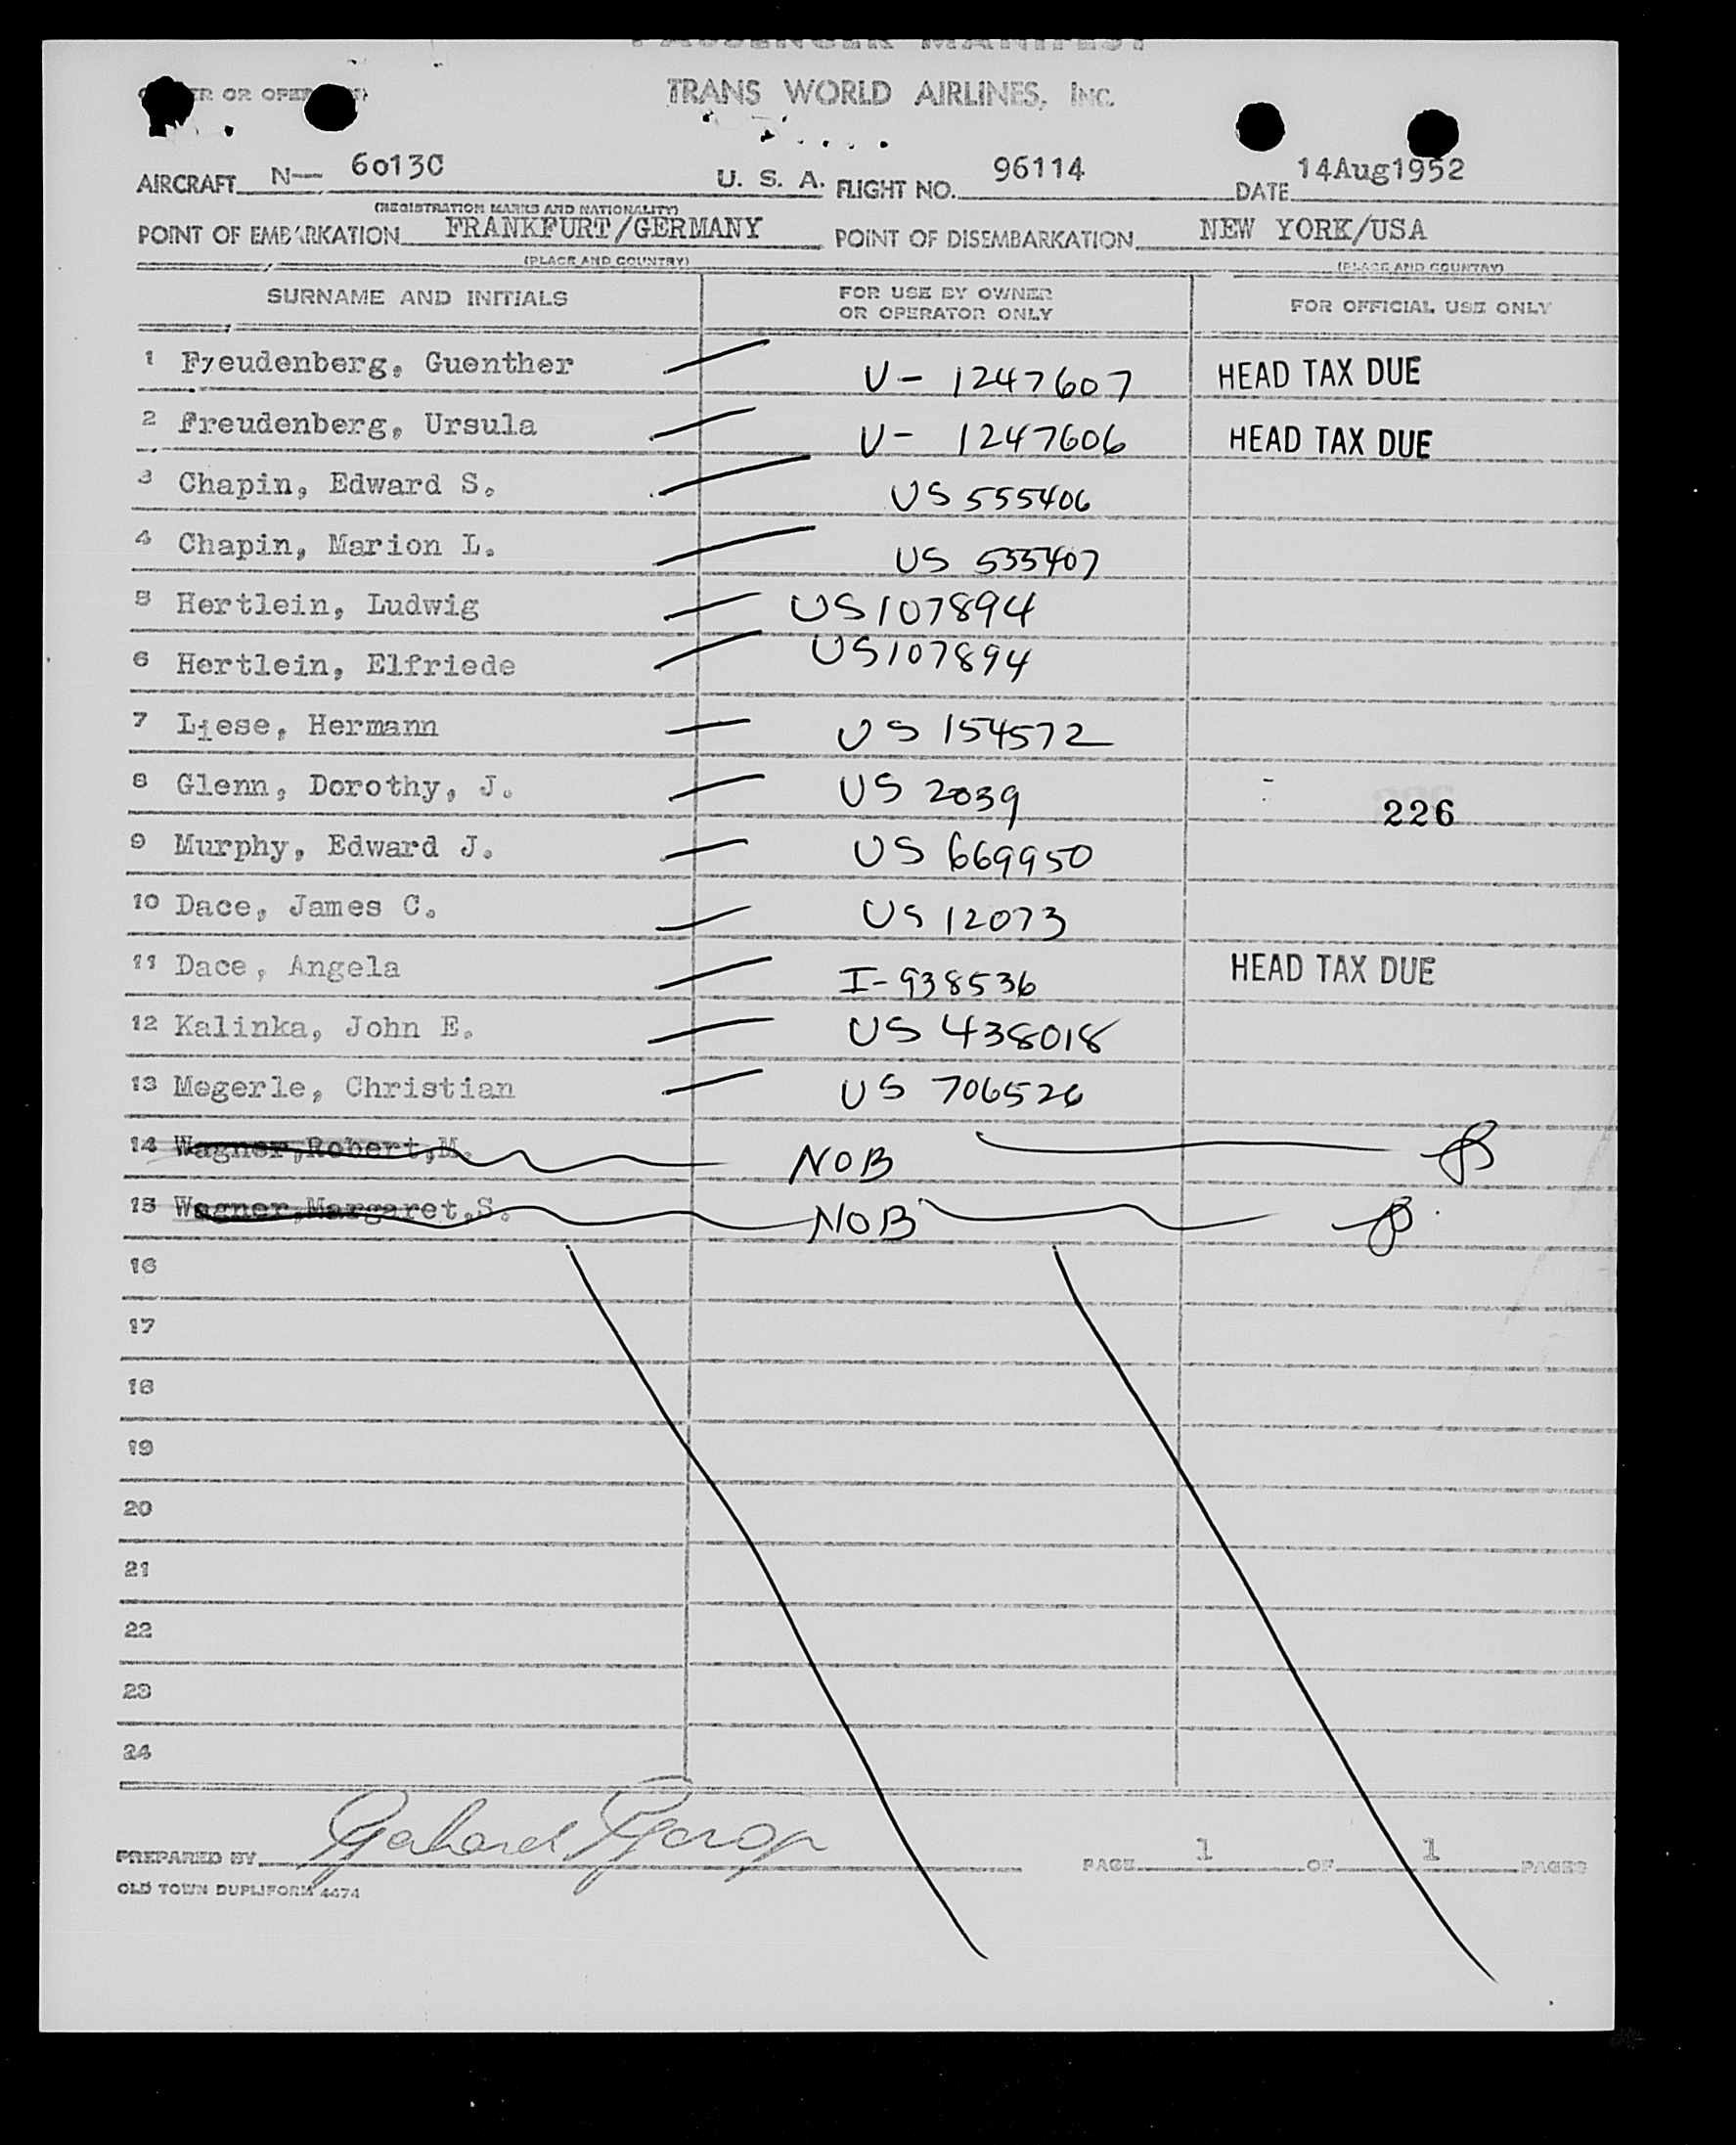 PASSENGER MANIFEST
OWNER OR OPERATOR TRANS WORLD AIRLINES, INC.
AIRCRAFT N— 6013C U. S. A. FLIGHT NO. 96114 DATE 14Aug1952
(REGISTRATION MARKS AND NATIONALITY)
POINT OF EMBARKATION FRANKFURT/GERMANY POINT OF DISEMBARKATION NEW YORK/USA
(PLACE AND COUNTRY) (PLACE AND COUNTRY)
SURNAME AND INITIALS FOR USE BY OWNER OR OPERATOR ONLY FOR OFFICIAL USE ONLY
1 Freudenberg, Guenther V- 1247607 HEAD TAX DUE
2 Freudenberg, Ursula V- 1247606 HEAD TAX DUE
3 Chapin, Edward S. US 555406
4 Chapin, Marion L. US 555407
5 Hertlein, Ludwig US 107894
6 Hertlein, Elfriede US 107894
7 Liese, Hermann US 154572
8 Glenn, Dorothy, J. US 2039 226
9 Murphy, Edward J. US 669950
10 Dace, James C. US 12073
11 Dace, Angela I-938536 HEAD TAX DUE
12 Kalinka, John E. US 438018
13 Megerle, Christian US 706526
14 Wagner,Robert,M. NOB
15 Wagner,Margaret,S. NOB
16
17
18
19
20
21
22
23
24
PREPARED BY PAGE 1 OF 1 PAGES
OLD TOWN DUPLIFORM 4474